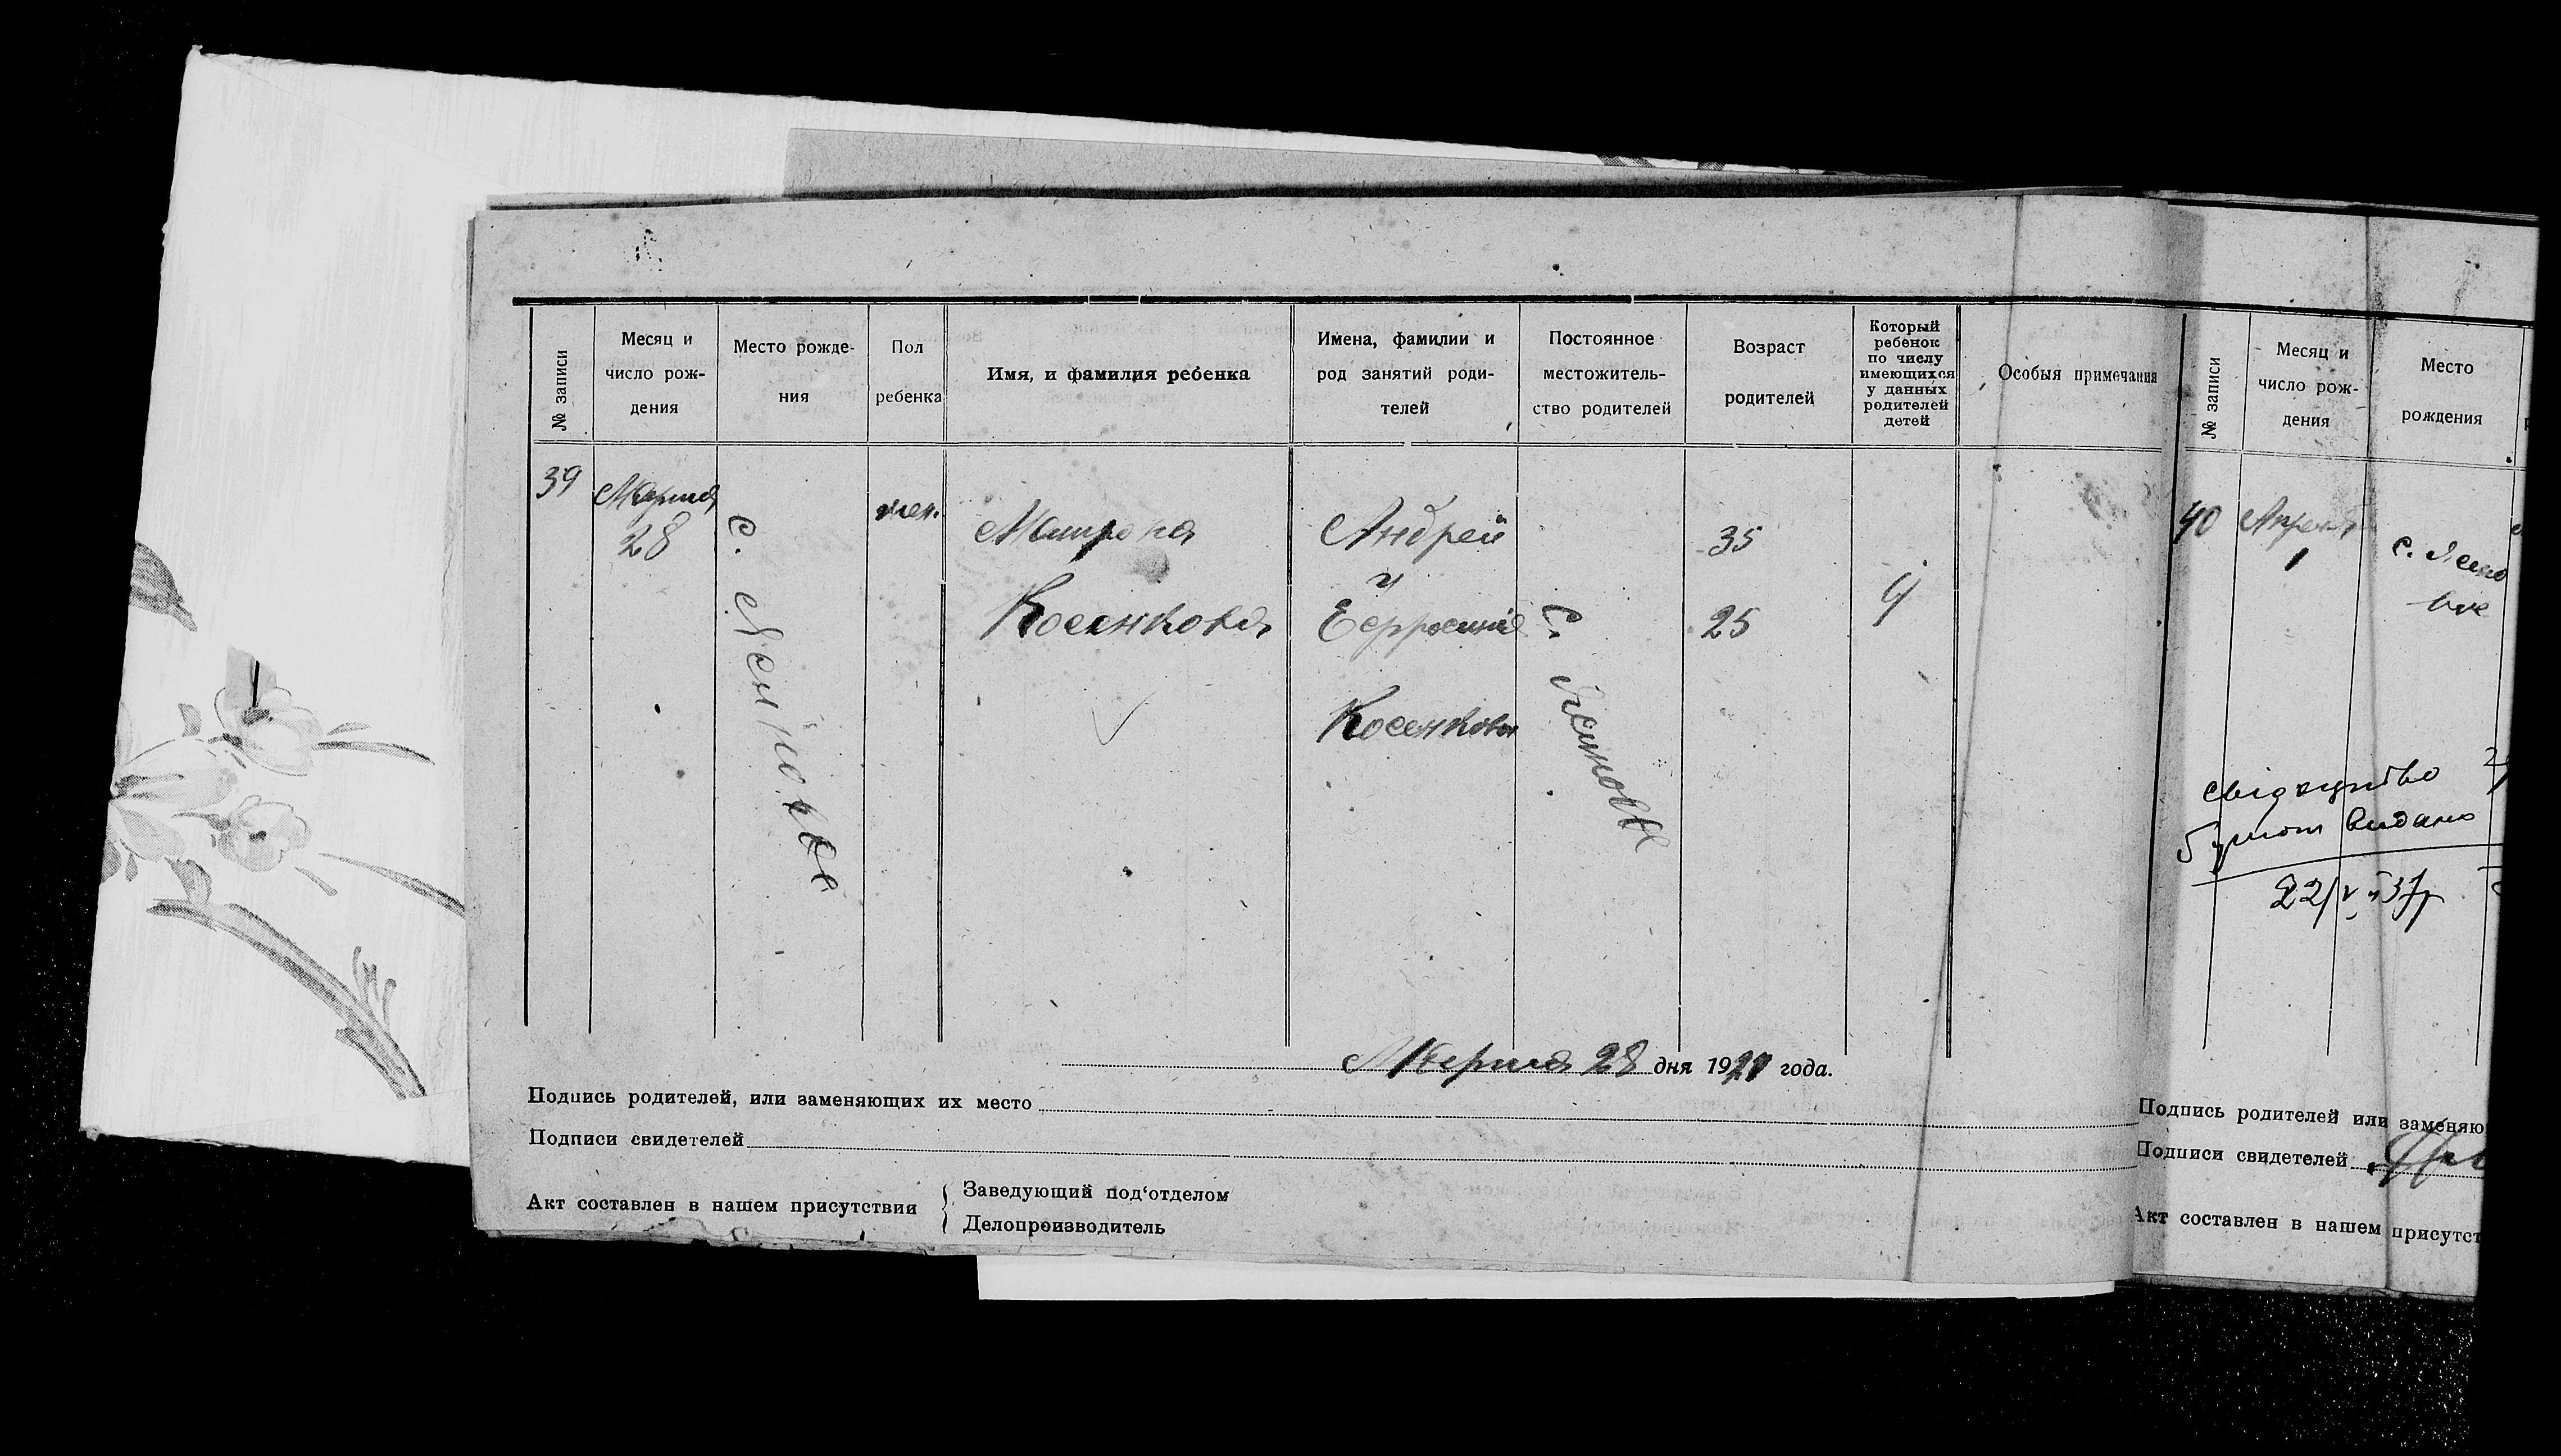 № записи
Месяц и
число рож-
дения
Место рожде-
ния
Пол
ребенка
Имя, и фамилия ребенка
Имена, фамилии и
род занятий роди-
телей
Постоянное
местожитель-
ство родителей
Возраст
родителей
Который
ребенок
по числу
имеющихся
у данных
родителей
детей
Особыя примечания
39
Марта
28
с.
жен.
Матрона
Косенкова
Андрей
и
Косенковы
с.
35
25
4
Марта 28 дня 1921 года.
Подпись родителей, или заменяющих их место
Подписи свидетелей
Акт составлен в нашем присутствии
Заведующий под'отделом
Делопроизводитель
№ записи
Месяц и
число рож-
дения
Место
рождения
40
Апреля
1
с.
видано
Подпись родителей или заменяю
Подписи свидетелей
Акт составлен в нашем присутст